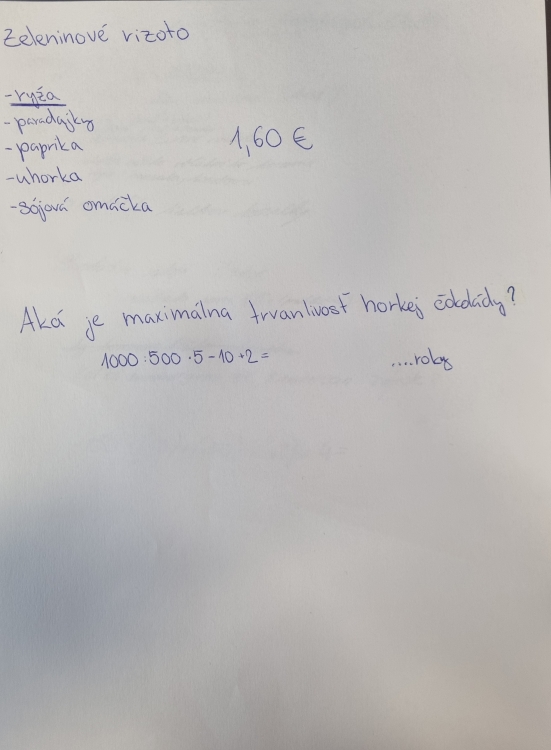 Zeleninové rizoto
-ryža
-paradajky
-paprika
1,60 €
-uhorka
-sójová omáčka
Aká je maximálna trvanlivosť horkej čokolády?
1000:500 ·5-10+2=
....roky